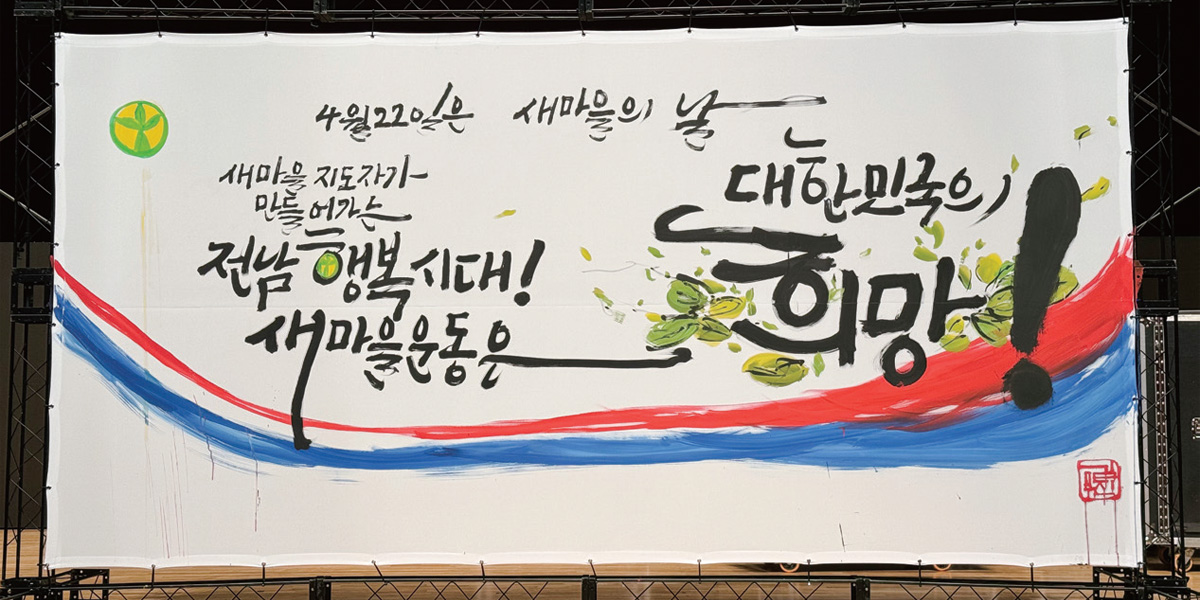 4월22일은 새마을의 날
새마을 지도자가
만들어가는
전남 행복시대!
새마을운동은
대한민국의
희망!